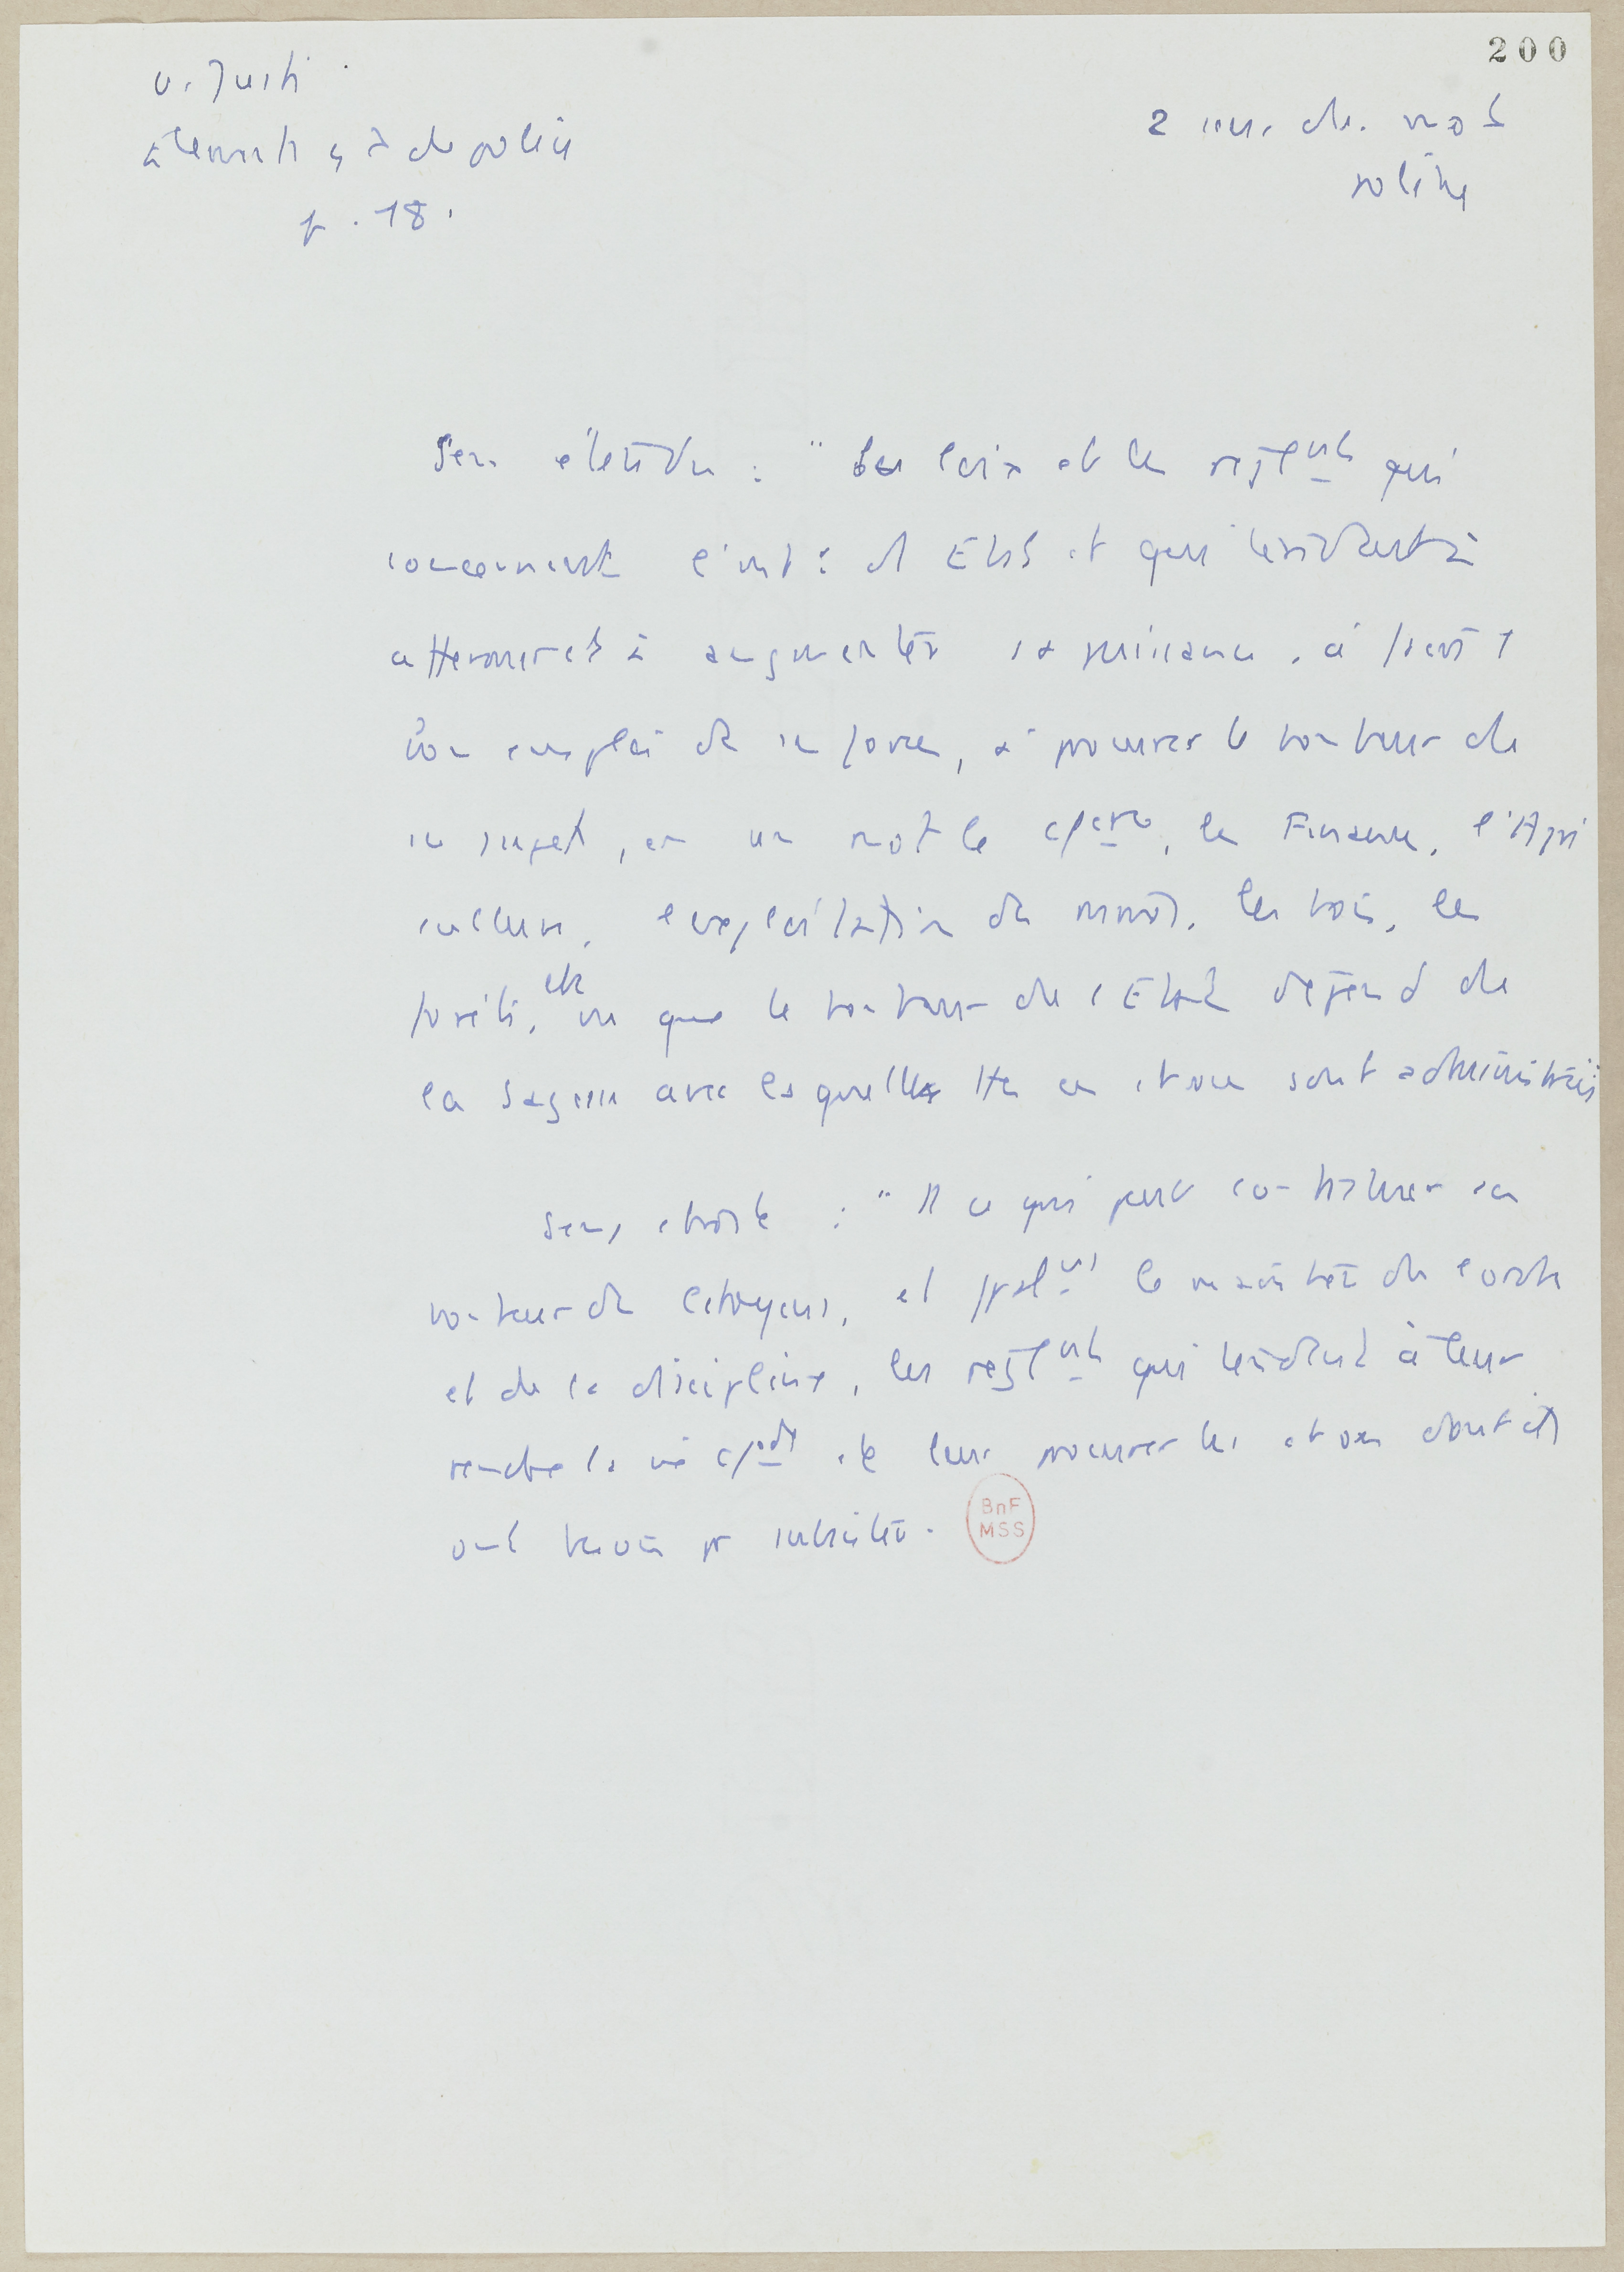 200
v. Justi
Elements gx de police
p. 18.
2 sens du mot
police
Sens étendu : "Les lois et les reglmts qui
concernent l'int: d Etat et qui tendent à
affermir et à augmenter sa puissance, à faire 1
bon emploi de ses forces, à procurer le bonheur de
ses sujets, en un mot le cʃerce, les Finances, l'Agri
culture, l'exploitation des mines, les bois, les
forêts, etc vu que le bonheur de l'Etat dépend de
la sagesse avec laquelle ttes ces choses sont administrées
Sens etroite : "Tt ce qui peut contribuer au
bonheur des citoyens, et ppalmt le maintien de l'ordre
et de la discipline, les reglmts qui tendent à leur
rendre la vie cʃode et leur procurer les choses dont ils
ont besoin pr subsister.
BnF
MSS